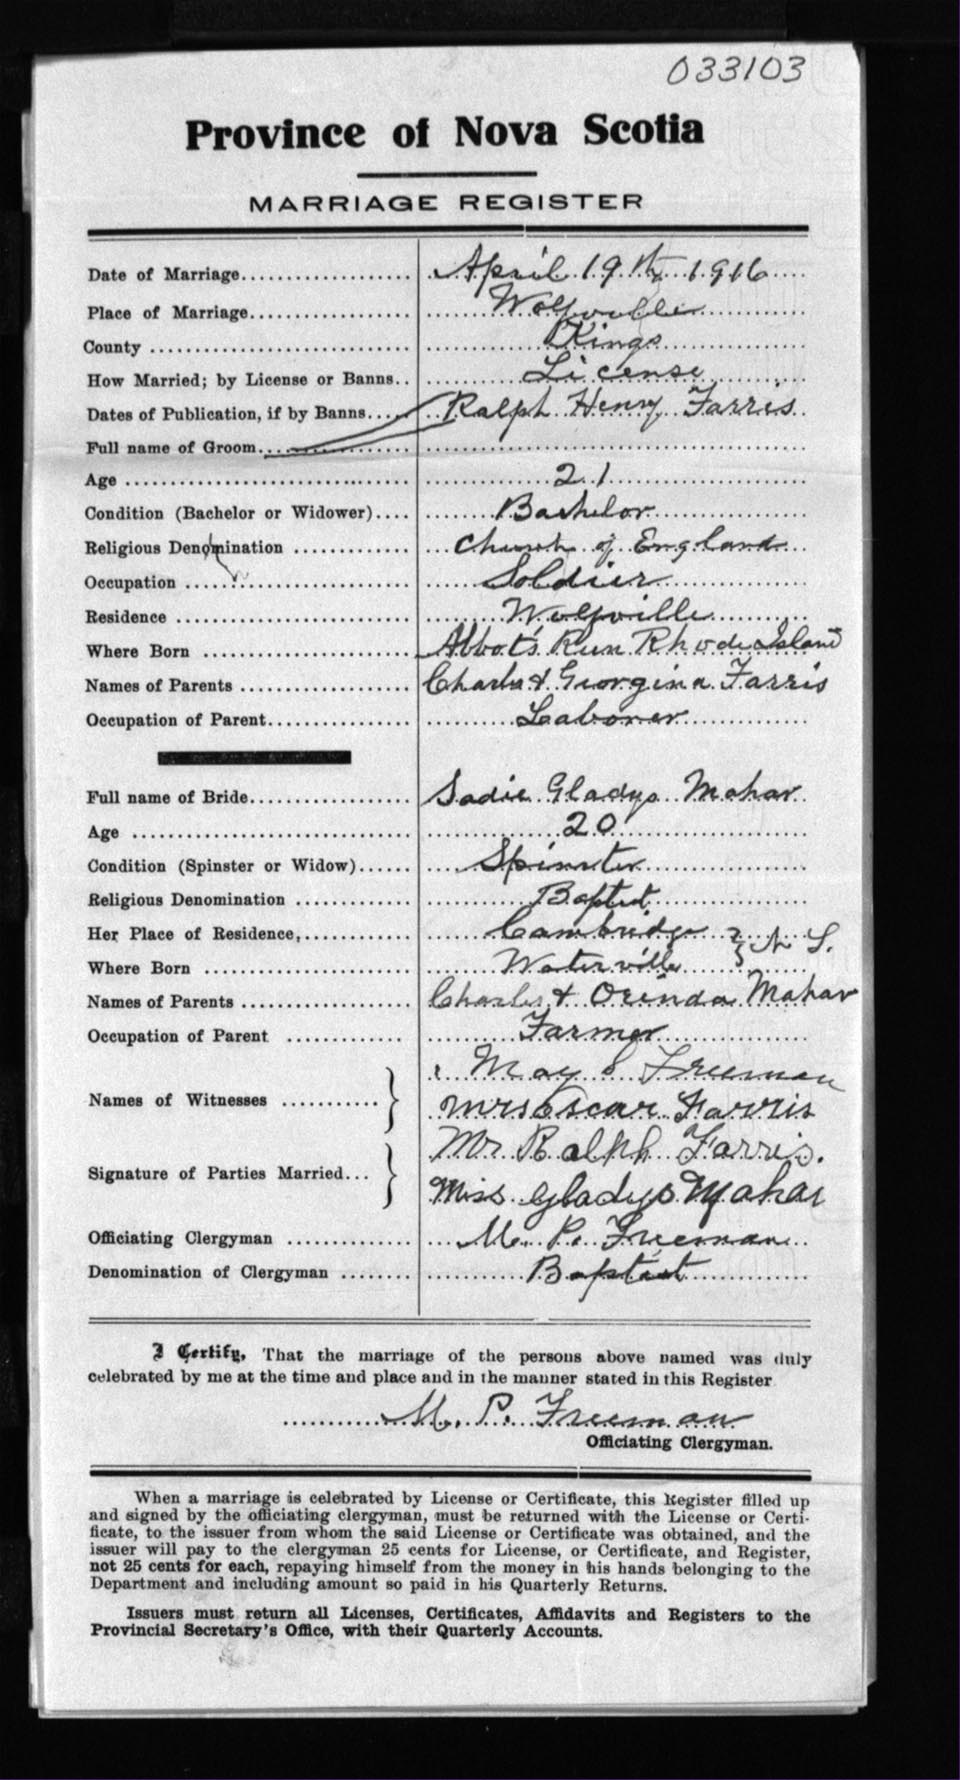 033103
Province of Nova Scotia
MARRIAGE REGISTER
Date of Marriage.................... April 19th 1916
Place of Marriage................... Wolfville
County .............................. Kings
How Married; by License or Banns.. License
Dates of Publication, if by Banns.... Ralph Henry Farris
Full name of Groom..................
Age ................................. 21
Condition (Bachelor or Widower).... Bachelor
Religious Denomination ............. Church of England
Occupation .......................... Soldier
Residence ........................... Wolfville
Where Born ........................ Abbot's Run Rhode Island
Names of Parents .................... Charles & Georgina Farris
Occupation of Parent................. Laborer
Full name of Bride................... Sadie Gladys Mahar
Age ................................. 20
Condition (Spinster or Widow)...... Spinster
Religious Denomination ............. Baptist
Her Place of Residence,............. Cambridge } N S.
Where Born ........................ Waterville
Names of Parents .................... Charles & Orinda Mahar
Occupation of Parent .............. Farmer
May S Freeman
Names of Witnesses ........... } Mrs Oscar Farris
Mr Ralph Farris.
Signature of Parties Married... } Miss Gladys Mahar
Officiating Clergyman .............. M. P. Freeman
Denomination of Clergyman ........ Baptist
I Certify, That the marriage of the persons above named was duly
celebrated by me at the time and place and in the manner stated in this Register
M. P. Freeman
Officiating Clergyman.
When a marriage is celebrated by License or Certificate, this Register filled up
and signed by the officiating clergyman, must be returned with the License or Certi-
ficate, to the issuer from whom the said License or Certificate was obtained, and the
issuer will pay to the clergyman 25 cents for License, or Certificate, and Register,
not 25 cents for each, repaying himself from the money in his hands belonging to the
Department and including amount so paid in his Quarterly Returns.
Issuers must return all Licenses, Certificates, Affidavits and Registers to the
Provincial Secretary's Office, with their Quarterly Accounts.